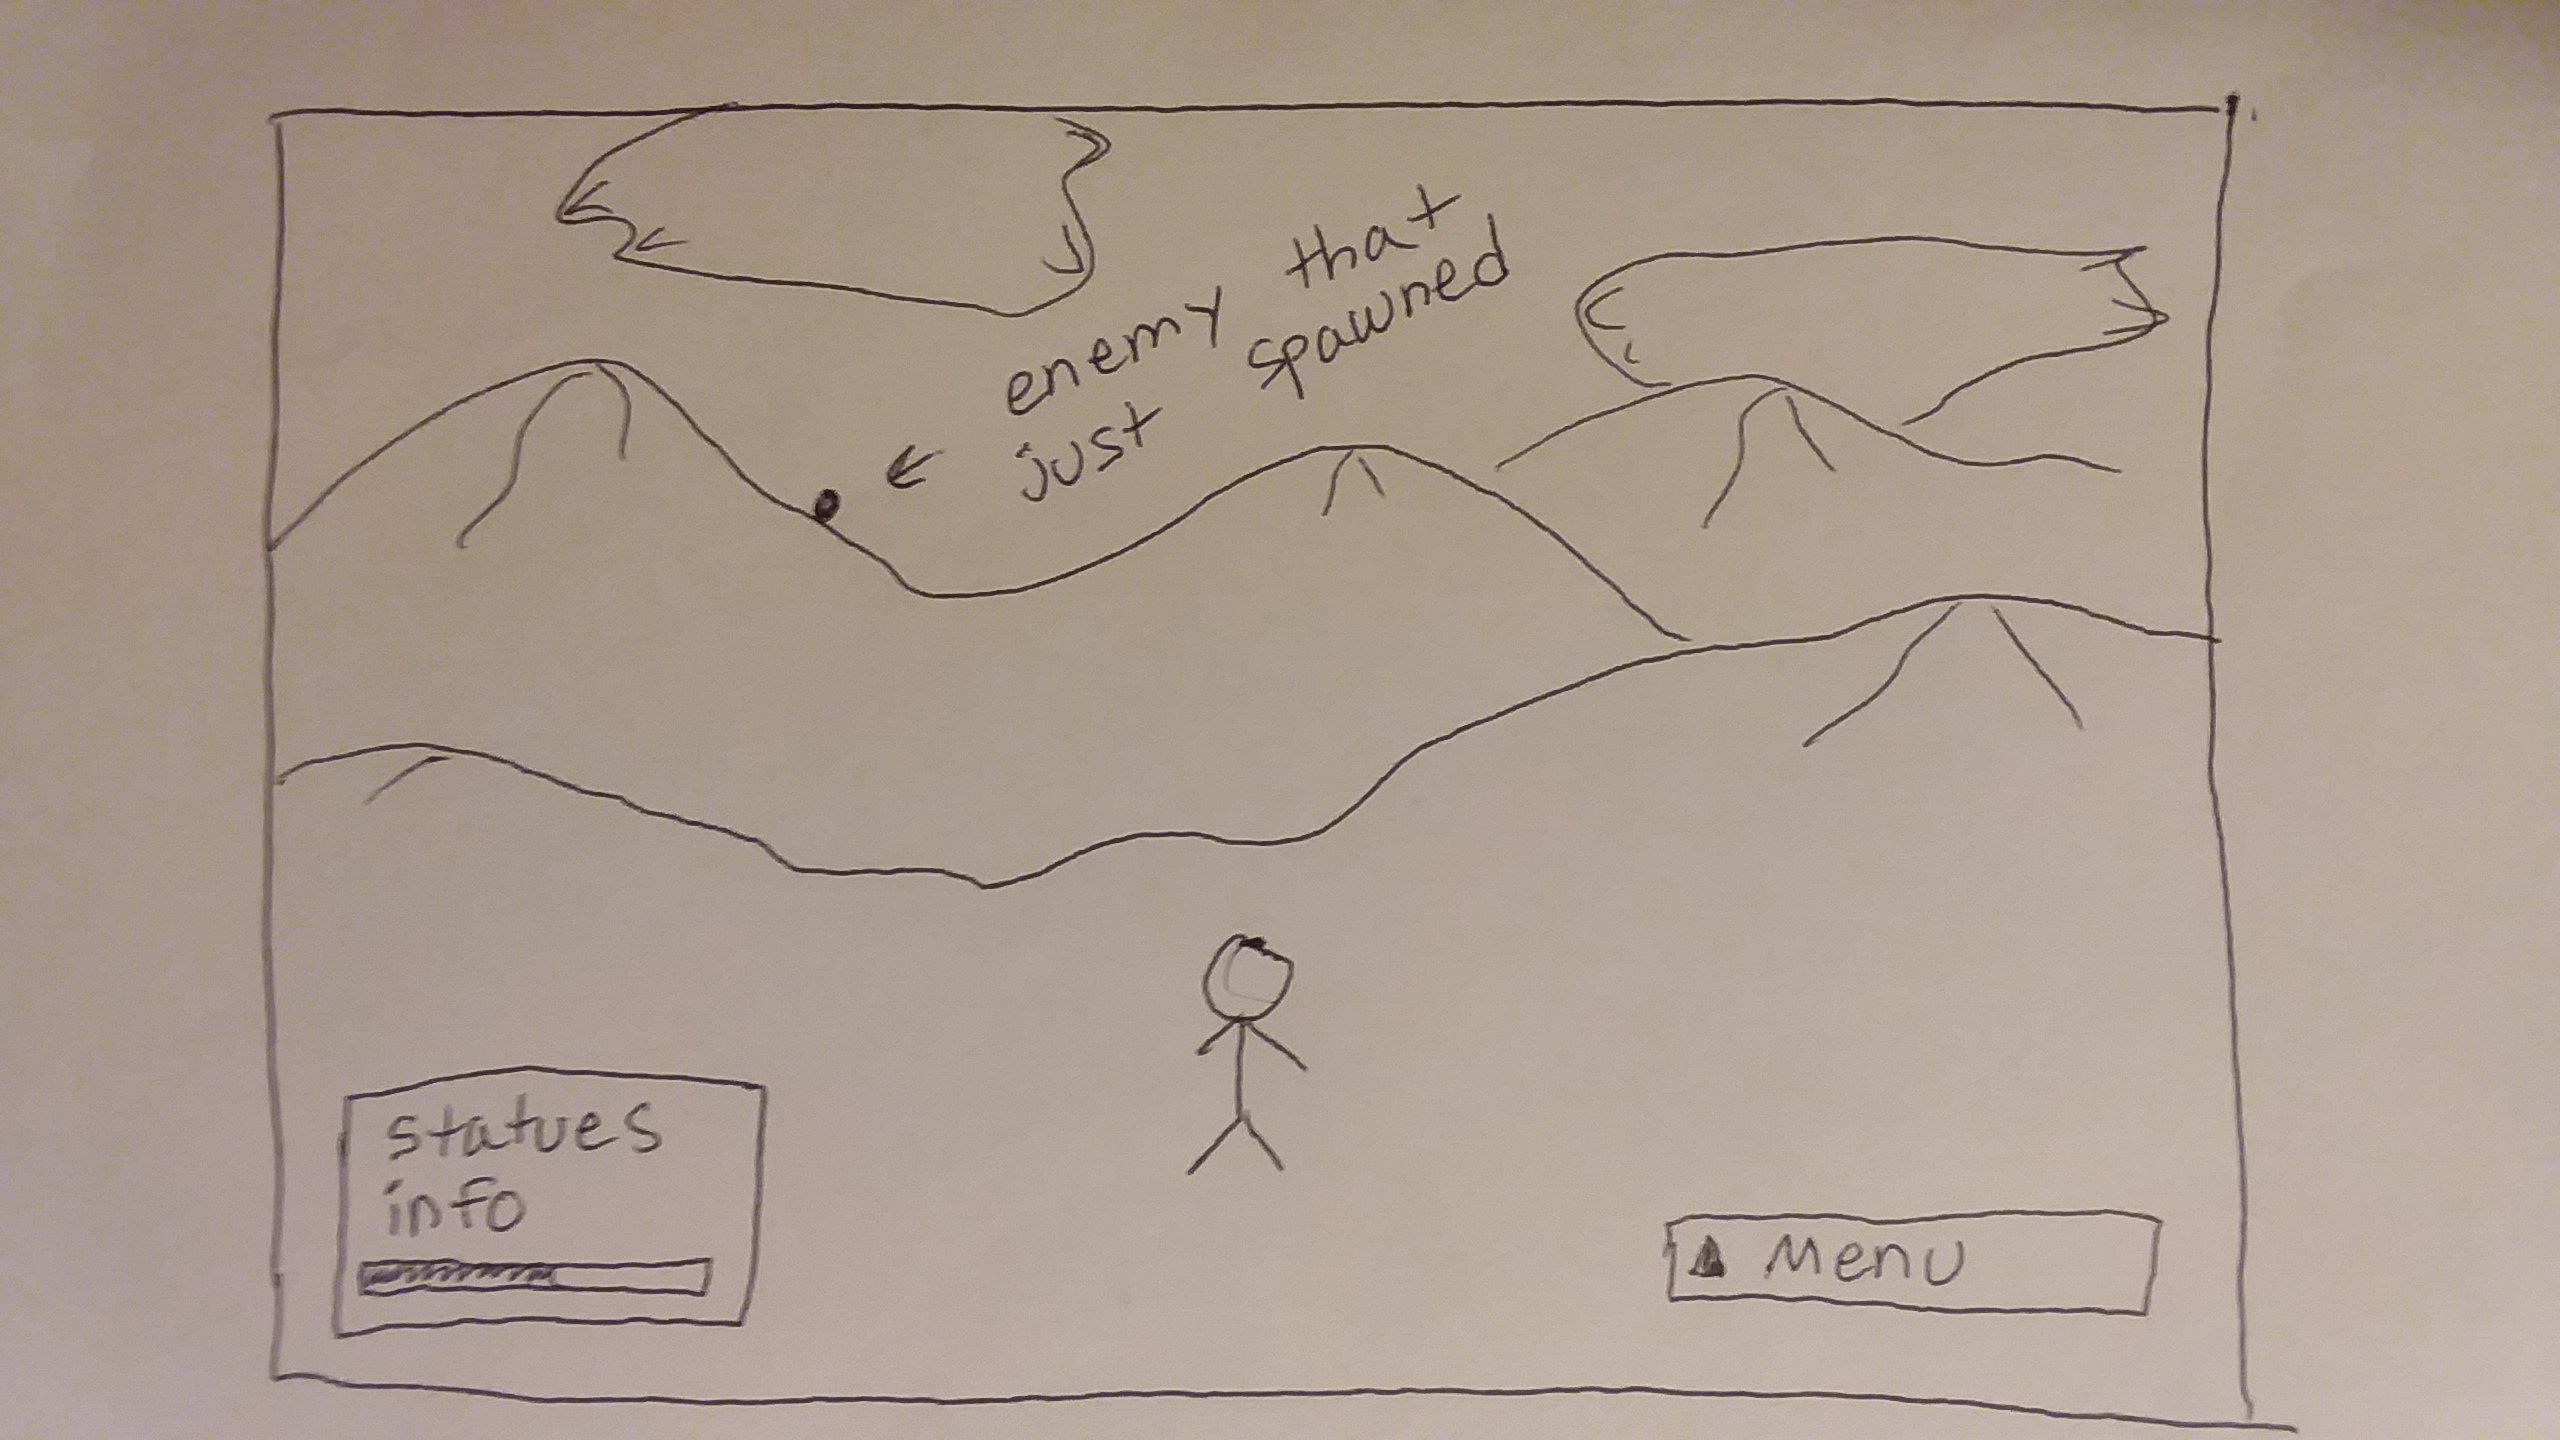 enemy that
just spawned
statues
info
Menu